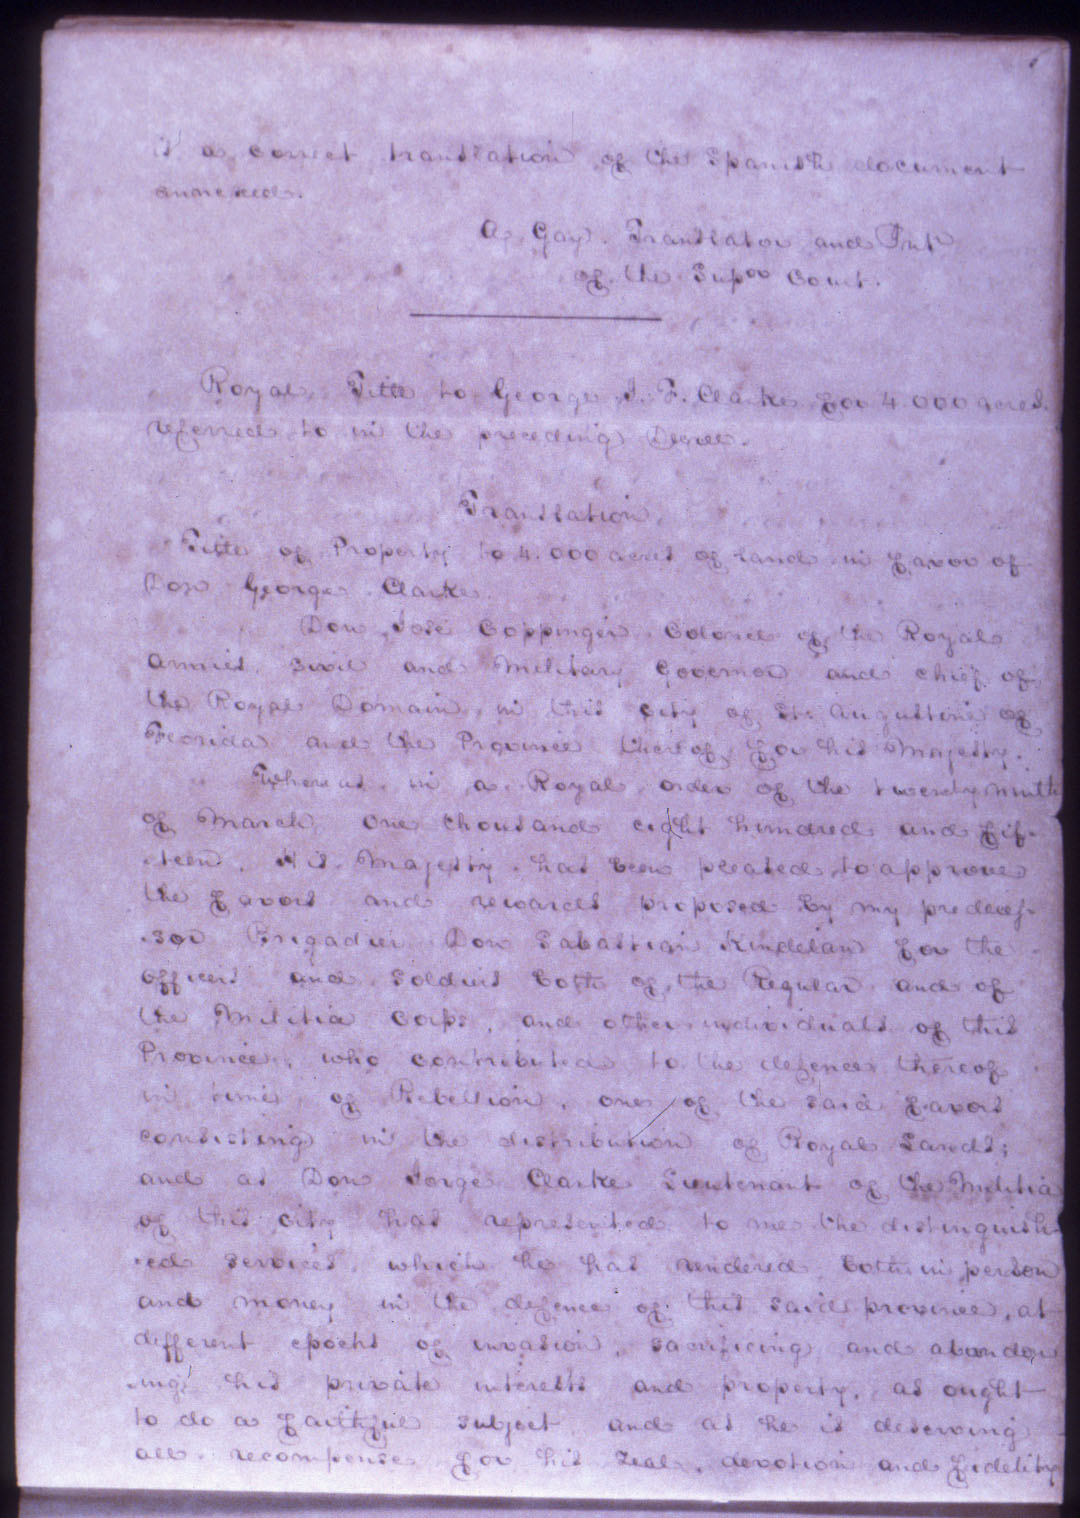 is a correct translation of the Spanish document
annexed.
A. Gay. Translator and Intr
of the Supor Court.
Royal Title to George J. F. Clarke for 4.000 acres.
referred to in the preceding Decree.
Translation.
Title of Property to 4.000 acres of land in favor of
Don George Clarke.
Don José Coppinger Colonel of the Royal
armies. Civil and Military Governor and chief of
the Royal Domain in this city of St. Augustine of
Florida and the Province thereof for his Majesty.
Whereas in a Royal order of the twenty ninth
of March, one thousand eight hundred and fif-
-teen, His Majesty has been pleased to approve
the favors and rewards proposed by my predeces-
-sor Brigadier Don Sabastian Kindelan for the
officers and soldiers both of the Regular and of
the Militia Corps, and other individuals of this
Province, who contributed to the defence thereof
in time of Rebellion, one of the said favors
consisting in the distribution of Royal Lands;
and as Don Jorge Clarke Lieutenant of the Militia
of this city has represented to me the distinguish-
-ed services, which he has rendered both in person
and money in the defence of this said province, at
different epochs of invasion, sacrificing and abandon
-ing his private interests and property, as ought
to do a faithful subject and as he is deserving
all recompense for his zeal, devotion and fidelity